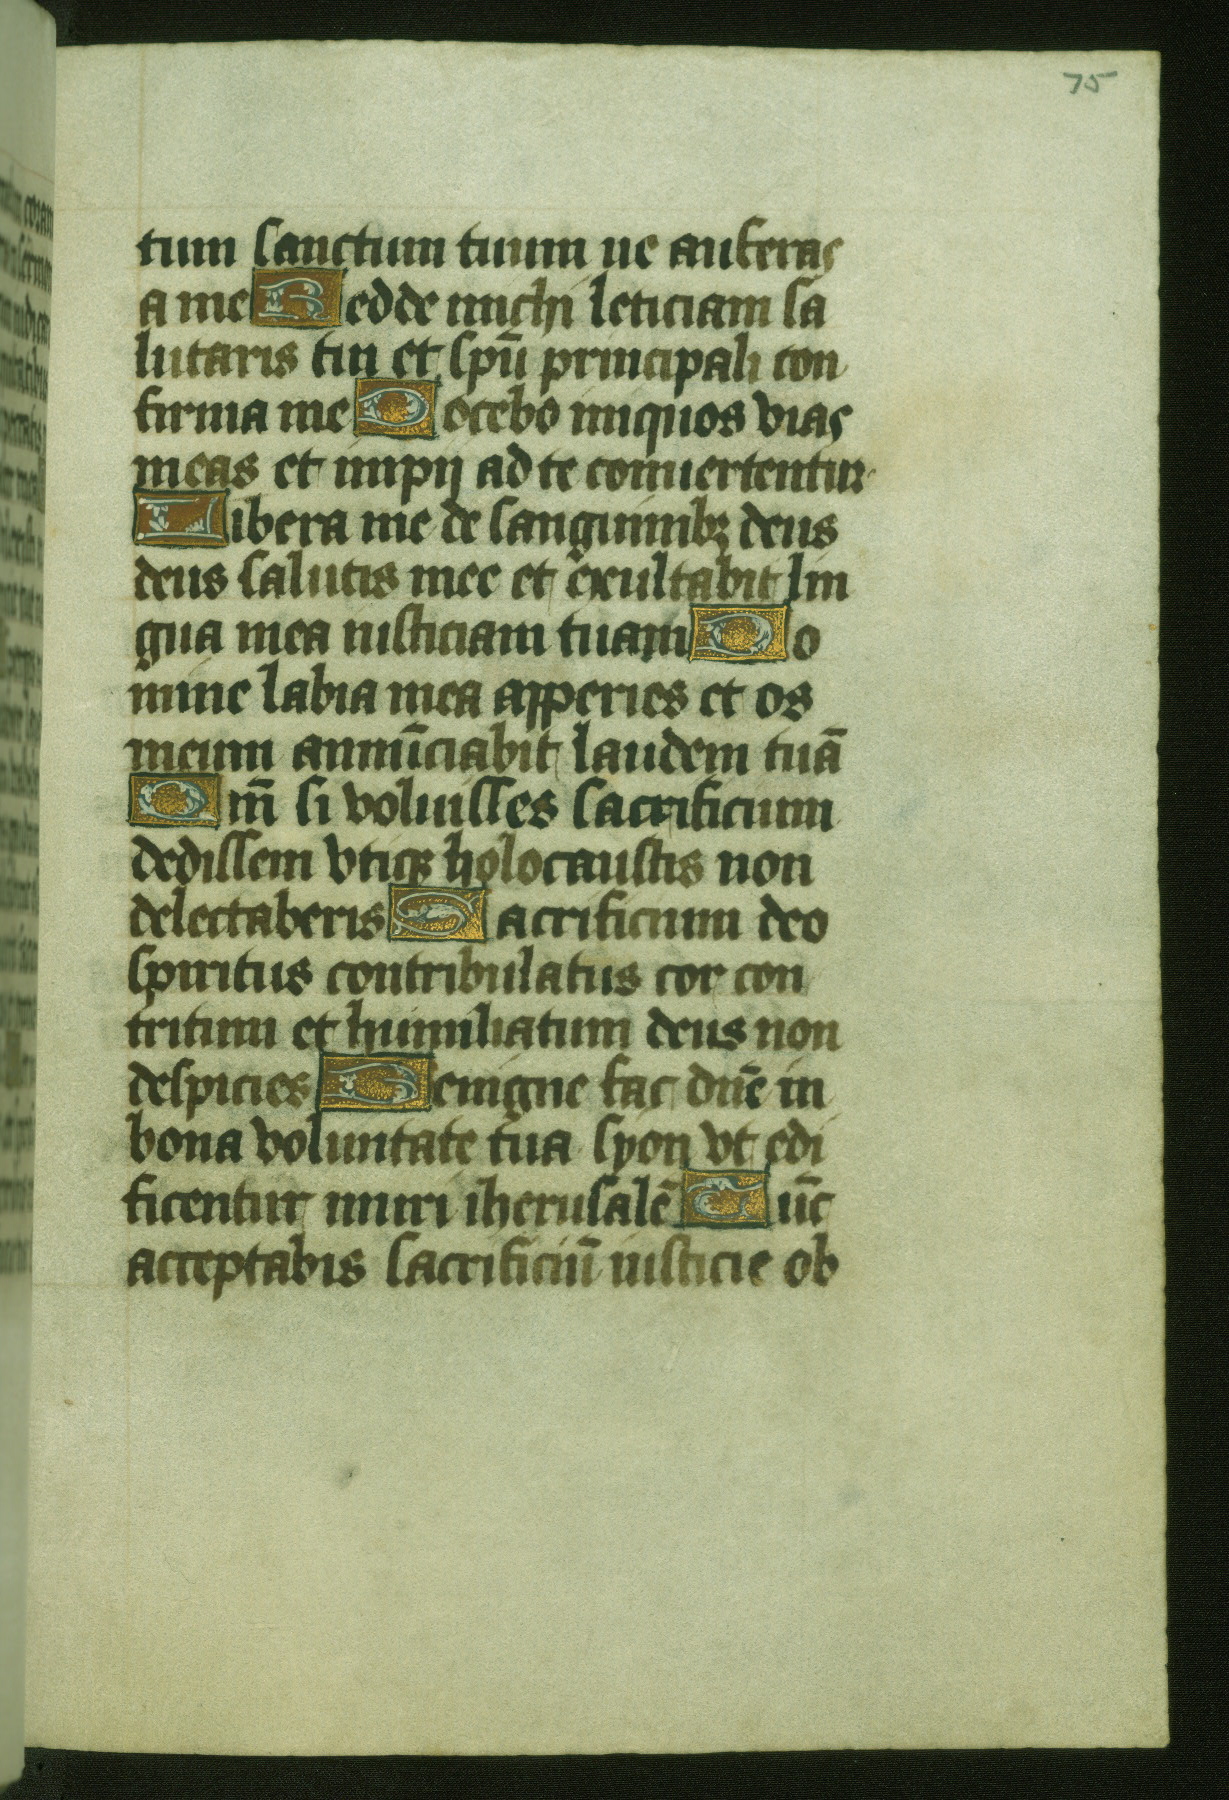 75
tum sanctum tuum ne auferas
a me Redde michi leticiam sa
lutaris tui et spū principali con
firma me Docebo iniquos vias
meas et impij ad te conuertentur
Libera me de sanguinibꝫ deus
deus salutis mee et exultabit lin
gua mea iusticiam tuam Do
mine labia mea apperies et os
meum annūciabit laudem tuā
Qm̄ si voluisses sacrificium
dedissem vtiqꝫ holocaustis non
delectaberis Sacrificium deo
spiritus contribulatus cor con
tritum et humiliatum deus non
despicies Benigne fac dn̄e in
bona voluntate tua syon vt edi
ficentur muri iherusalē Tūc
acceptabis sacrificiū iusticie ob